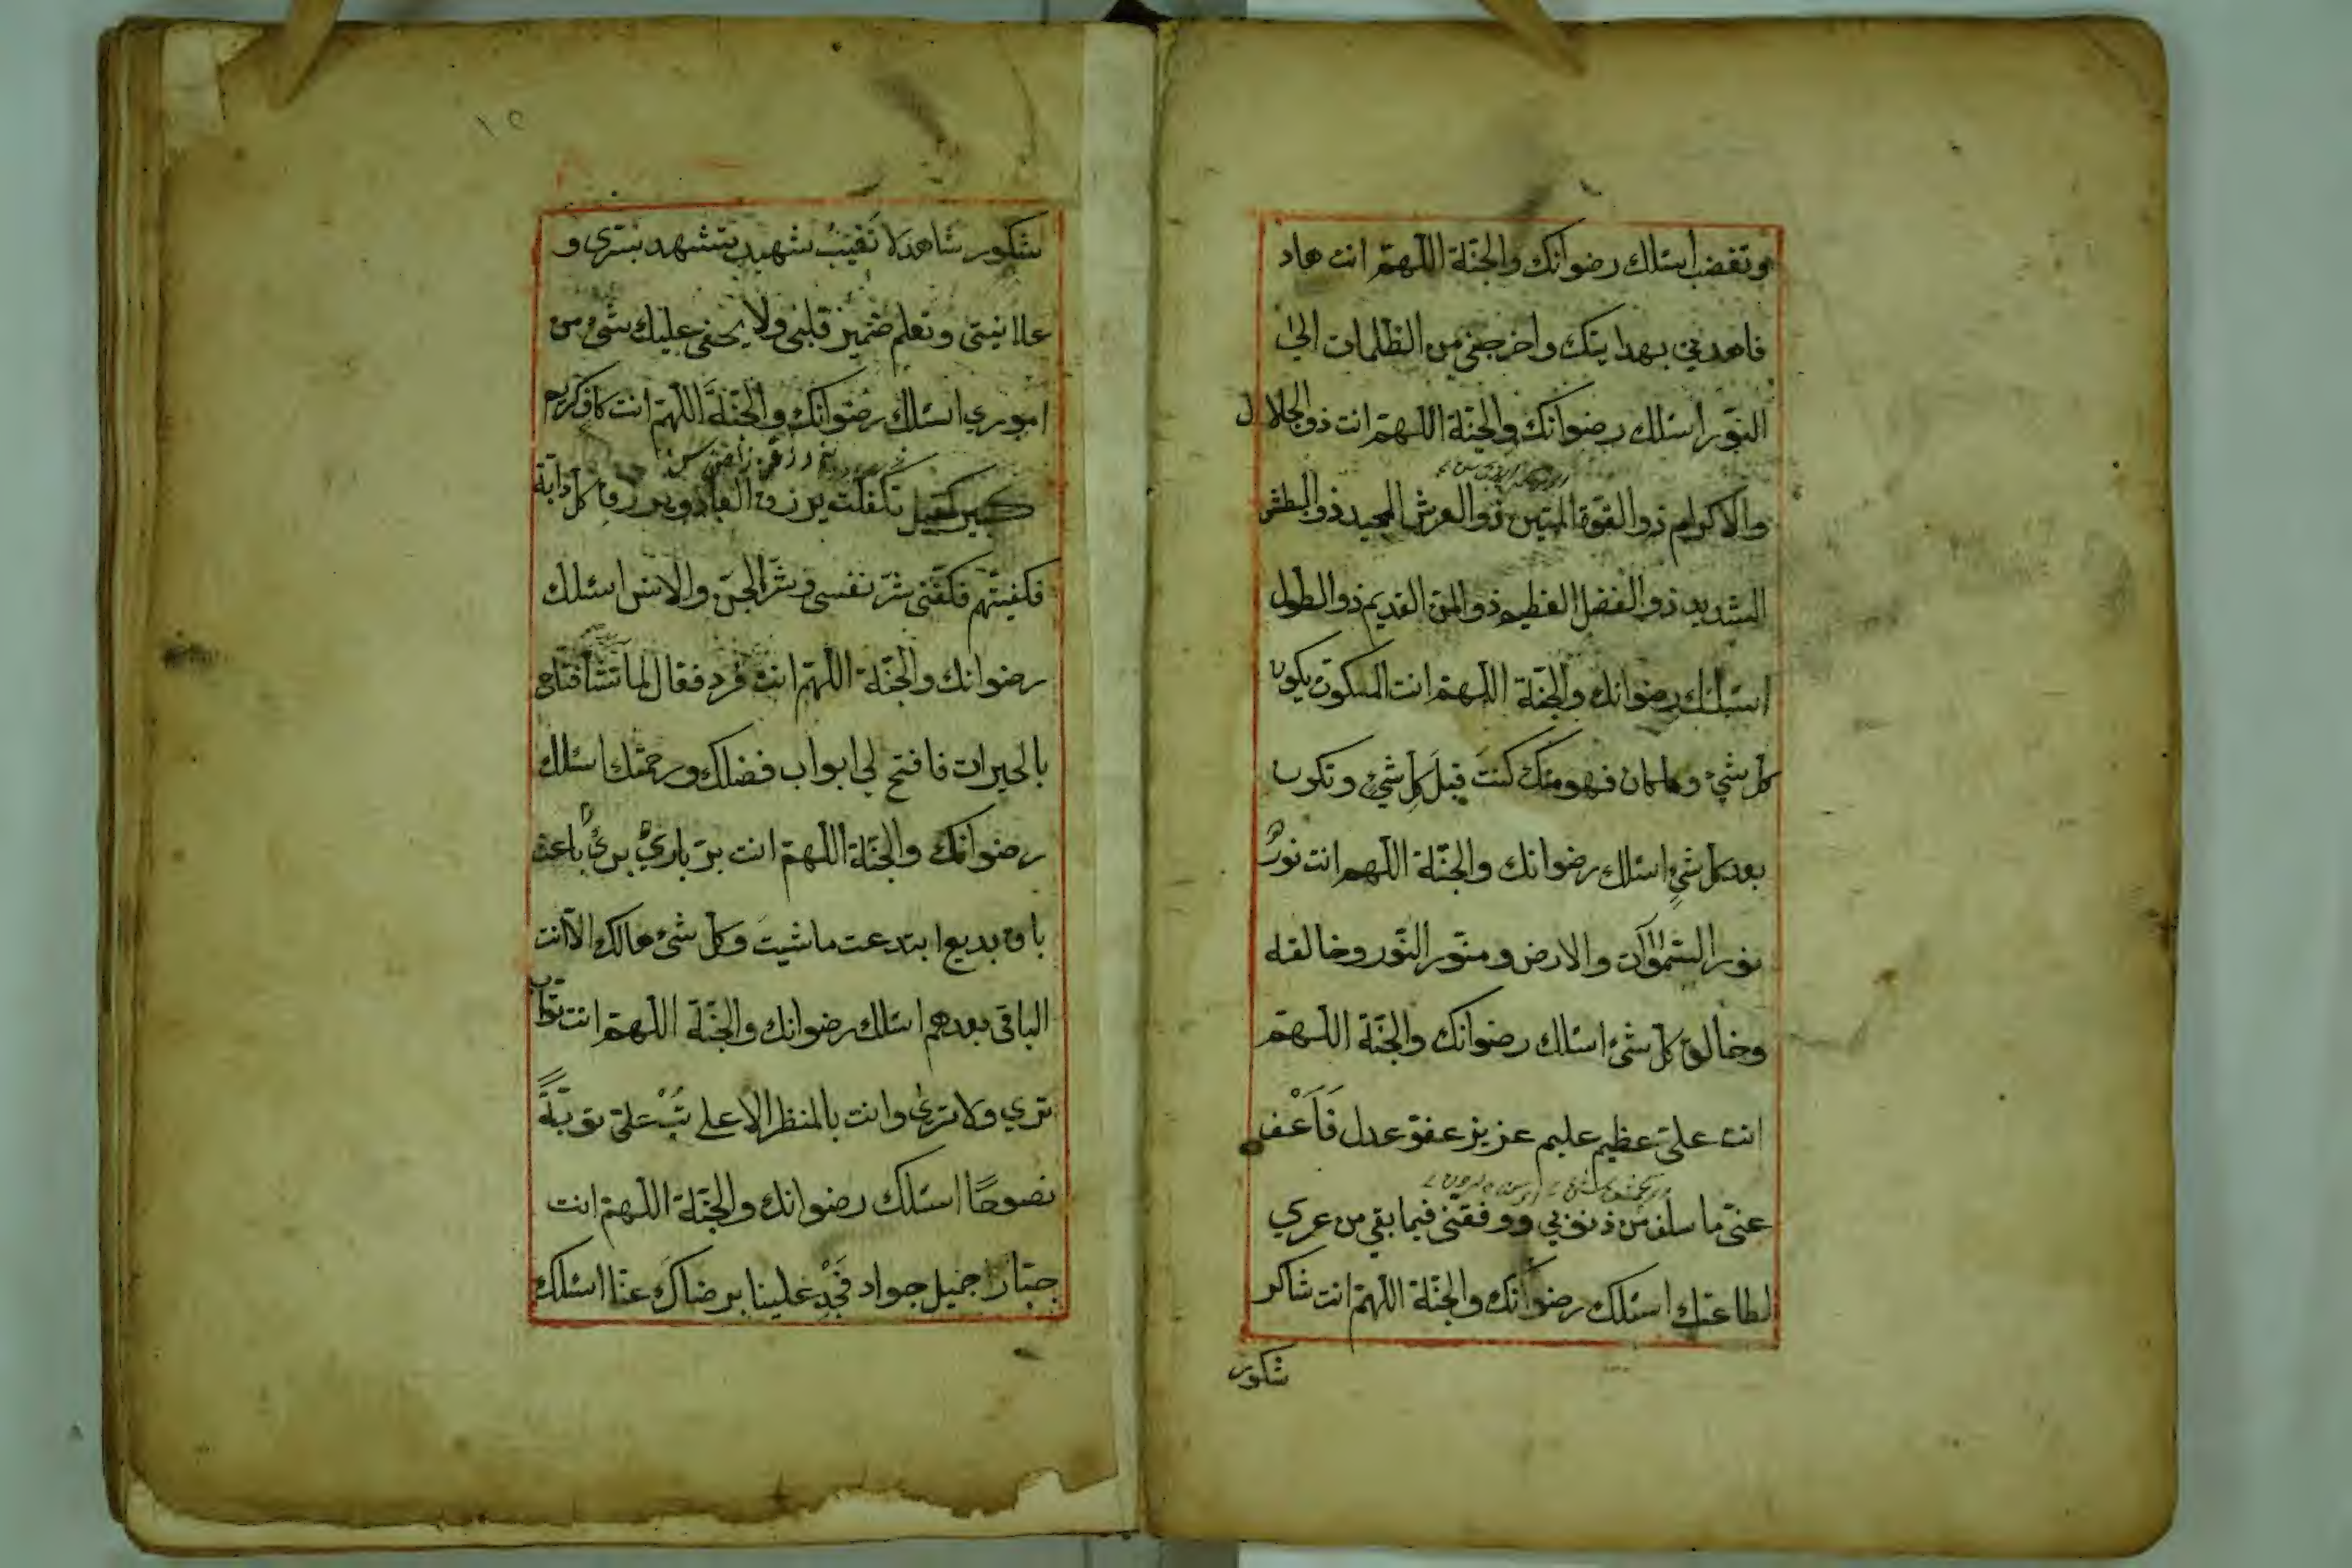 وتغضب اسئلك رضوانك والجنّة اللّهمّ انت هاد
فاهدني بهدايتك واخرجني من الظلمات الى
النّور اسئلك رضوانك والجنّة اللّهمّ انت ذو الجلال
والاكرام ذو القوّة المتين ذو العرش المجيد ذو البطش
الشديد ذو الفضل العظيم ذو المنّ القديم ذو الطول
اسئلك رضوانك والجنّة اللّهمّ انت المسكون يكون
كلّ شيء وما كان فهو منك كنت قبل كلّ شيء وتكون
بعد كلّ شيءٍ اسئلك رضوانك والجنّة اللّهم انت نورٌ
نور السّموات والارض ومنوّر النّور وخالقه
وخالق كلّ شيء اسئلك رضوانك والجنّة اللّهمّ
انت علىّ عظيم عليم عزيز عفوّ عدل فَاَعْف
عنّي ما سلف من ذنوبي ووفقني فيما بقي من عمري
لطاعتك اسئلك رضوانك والجنّة اللّهمّ انت شاكر
شكور
١٥
شكور شاهد لا تَغيبُ شهيد تشهد سرّي و
علانيتي وتعلم ضمير قلبي ولا يخفى عليك شيء من
اموري اسئلك رضوانك والجنّة اللّهمّ انت كافٍ كريم
كبير كفيل تكفلت برزق العباد وبرزق كل دابّة
فكفيتهم فكفّني شرّ نفسي وشرّ الجنّ والانس اسئلك
رضوانك والجنّة اللّهمّ انت فرد فعّال لما تشآ فتّاح
بالخيرات فافتح لي ابواب فضلك ورحمتك اسئلك
رضوانك والجنّة اللّهمّ انت برّ باريٌ بريٌ باعث
باق بديع ابتدعت ما شيت وكلّ شيء هالك الاّ انت
الباقي بعدهم اسئلك رضوانك والجنّة اللّهمّ انت توّاب
ترى ولا ترى وانت بالمنظر الاعلى تُبْ علىّ توبةً
نصوحًا اسئلك رضوانك والجنّة اللّهمّ انت
جبّار جميل جواد فَجُدْ علينا برضاك عنّا اسئلك